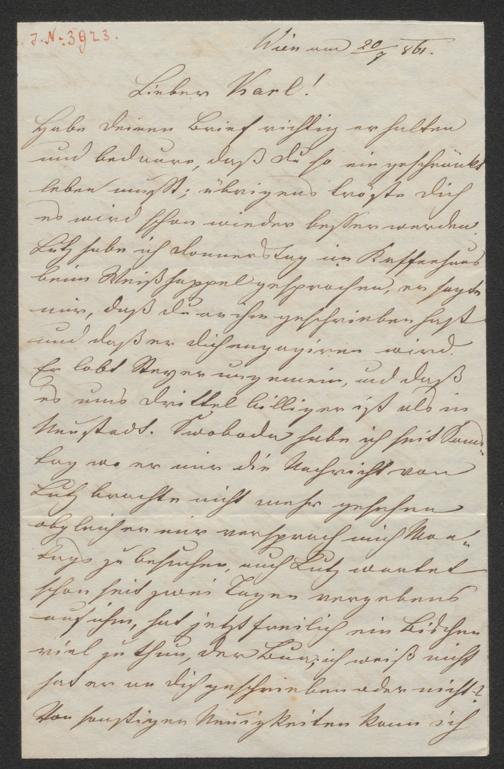 J. N. 3923.
Wien am 20/9 861.
Lieber Karl!
Habe deinen Brief richtig erhalten
und bedaure, daß du so eingeschränkt
leben mußt; übrigens tröste dich
es wird schon wieder besser werden.
Lutz habe ich Donnerstag im Kaffeehaus
beim Weißhappel gesprochen, er sagte
mir, daß du an ihn geschrieben hast
und daß er dich engagiren wird.
Er lobt Steyer ungemein, und daß
es ums Drittel billiger ist als in
Neustadt. Swoboda habe ich seit Sams-
tag wo er mir die Nachricht von
Lutz brachte nicht mehr gesehen
obgleich er mir versprach mich Mon-
tags zu besuchen, auch Lutz wartet
schon seit zwei Tagen vergebens
auf ihn, hat jetzt freilich ein Bischen
viel zu thun, der ich weiß nicht
hat er an dich geschrieben oder nicht?
Von sonstigen Neuigkeiten kann ich